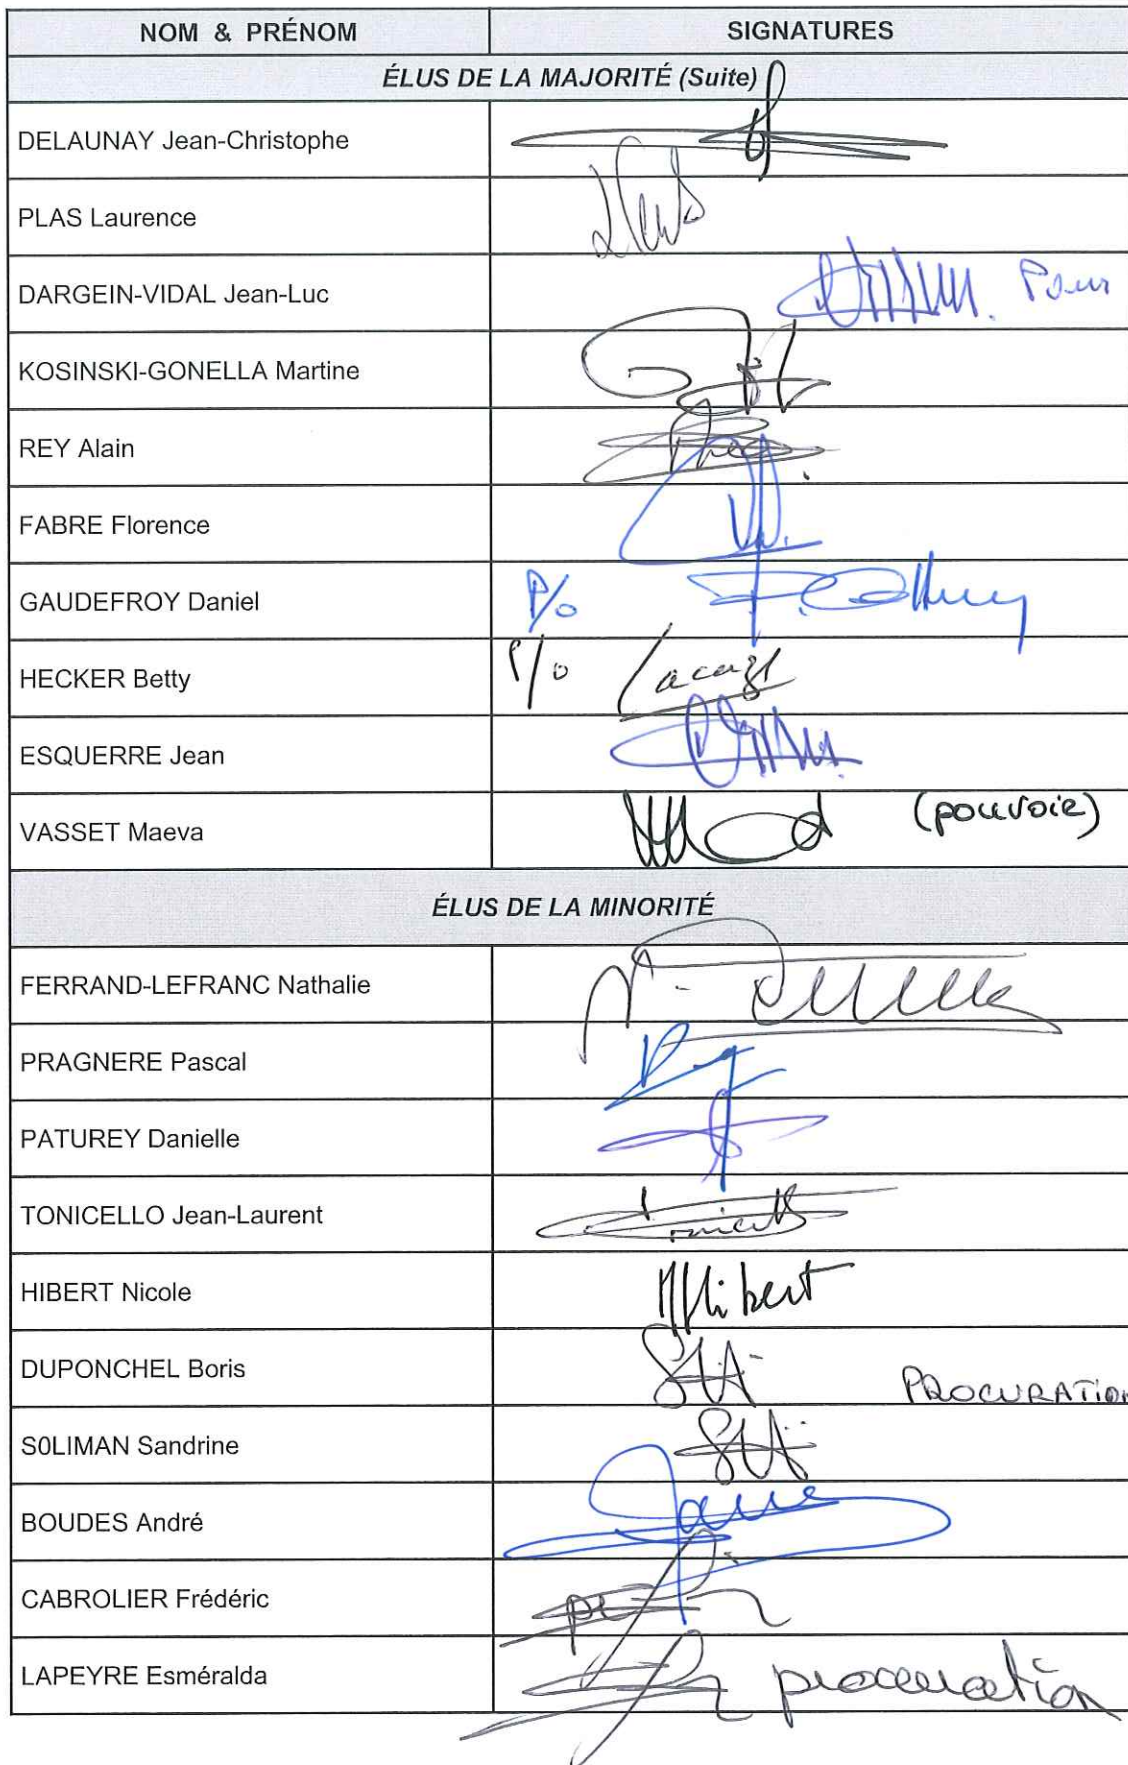 NOM & PRÉNOM SIGNATURES
ÉLUS DE LA MAJORITÉ (Suite)
DELAUNAY Jean-Christophe
PLAS Laurence
DARGEIN-VIDAL Jean-Luc Pour
KOSINSKI-GONELLA Martine
REY Alain
FABRE Florence
GAUDEFROY Daniel P/o
HECKER Betty P/o Lacaze
ESQUERRE Jean
VASSET Maeva (pouvoir)
ÉLUS DE LA MINORITÉ
FERRAND-LEFRANC Nathalie
PRAGNERE Pascal
PATUREY Danielle
TONICELLO Jean-Laurent
HIBERT Nicole Hibert
DUPONCHEL Boris PROCURATION
S0LIMAN Sandrine
BOUDES André
CABROLIER Frédéric
LAPEYRE Esméralda procuration